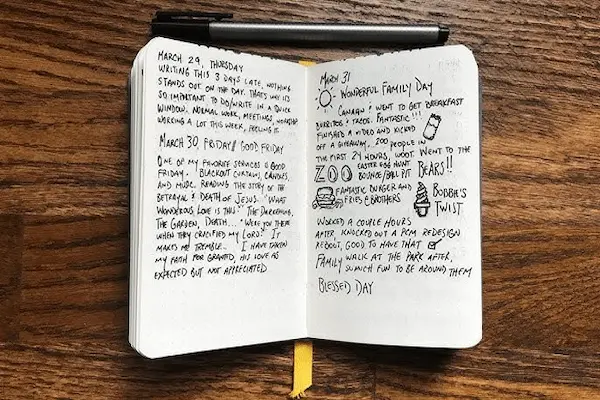 MARCH 29, THURSDAY
WRITING THIS 3 DAYS LATE, NOTHING
STANDS OUT ON THE DAY. THAT'S WHY IT'S
SO IMPORTANT TO DO/WRITE IN A QUICK
WINDOW. NORMAL WORK, MEETINGS, WORKSHOP
WORKING A LOT THIS WEEK, FEELING IT.
MARCH 30, FRIDAY // GOOD FRIDAY
ONE OF MY FAVORITE SERVICES IS GOOD
FRIDAY. BLACKOUT CURTAINS, CANDLES,
AND MUSIC. READING THE STORY OF THE
BETRAYAL & DEATH OF JESUS. "WHAT
WONDEROUS LOVE IS THIS" THE DARKENING,
THE GARDEN, DEATH... "WERE YOU THERE
WHEN THEY CRUCIFIED MY LORD?" IT
MAKES ME TREMBLE... I HAVE TAKEN
MY FAITH FOR GRANTED, HIS LOVE AS
EXPECTED BUT NOT APPRECIATED
MARCH 31
WONDERFUL FAMILY DAY
& I WENT TO GET BREAKFAST
BURRITOS & TACOS. FANTASTIC!!!
FINISHED A VIDEO AND KICKED
OFF A GIVEAWAY, 200 PEOPLE IN
THE FIRST 24 HOURS, WOOT. WENT TO THE
ZOO EASTER EGG HUNT BEARS!!
BOUNCE/BALL PIT
FANTASTIC BURGER AND BOBBIE'S
FRIES @ BROTHERS TWIST
WORKED A COUPLE HOURS
AFTER, KNOCKED OUT A PCM REDESIGN
REBOOT, GOOD TO HAVE THAT
FAMILY WALK AT THE PARK AFTER,
SO MUCH FUN TO BE AROUND THEM
BLESSED DAY